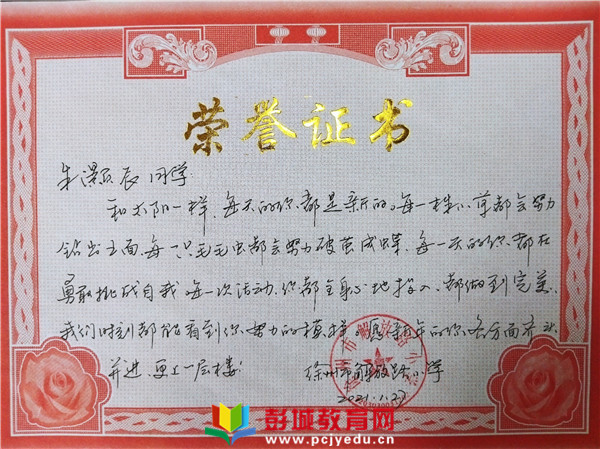 荣誉证书
朱灏辰同学:
和太阳一样,每天的你都是新的。每一株小草都会努力
钻出土面,每一只毛毛虫都会努力破茧成蝶,每一天的你都在
勇敢挑战自我。每一次活动,你都全身心地投入,都做到完美。
我们时刻都能看到你努力的模样,愿新年的你各方面齐头
并进,更上一层楼!
徐州市解放路小学
2021.1.27
彭城教育网
www.pcjyedu.cn